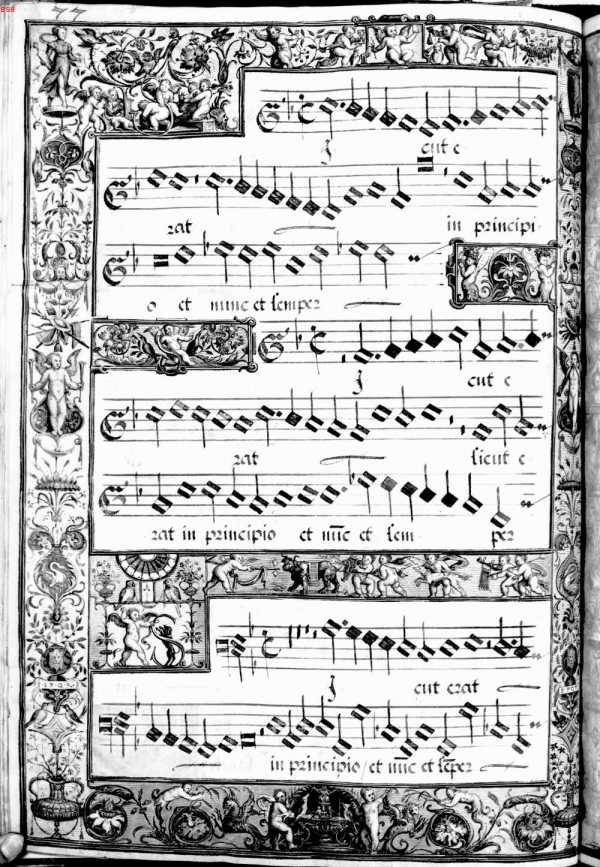 77
I cut e
rat in principi
o et nunc et semper
I cut e
rat sicut e
rat in principio et nūc et sem per
I cut erat
in principio / et nūc et sēper